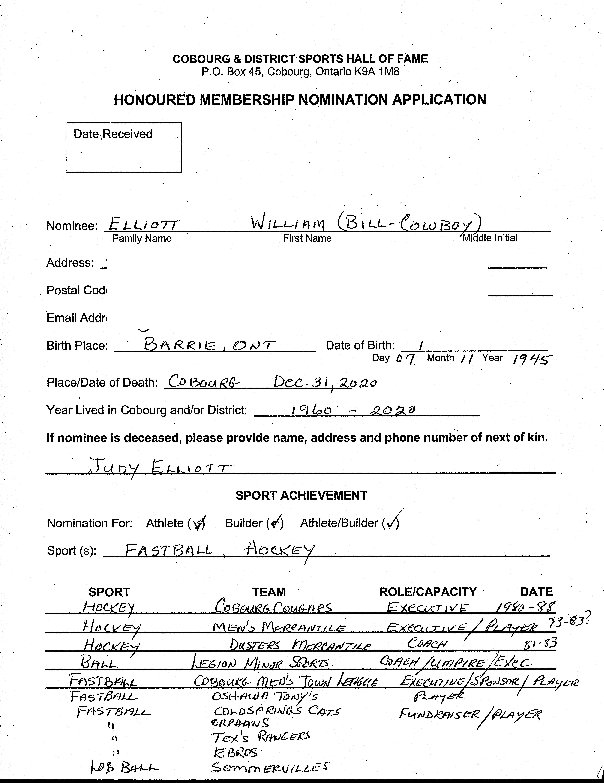 COBOURG & DISTRICT SPORTS HALL OF FAME
P.O. Box 45, Cobourg, Ontario K9A 1M8
HONOURED MEMBERSHIP NOMINATION APPLICATION
Date Received
Nominee: ELLIOTT WILLIAM (BILL-COWBOY)
Family Name First Name Middle Initial
Address:
Postal Cod
Email Addr
Birth Place: BARRIE, ONT Date of Birth:
Day 07 Month 11 Year 1945
Place/Date of Death: COBOURG DEC. 31, 2020
Year Lived in Cobourg and/or District: 1960 - 2020
If nominee is deceased, please provide name, address and phone number of next of kin.
JUDY ELLIOTT
SPORT ACHIEVEMENT
Nomination For: Athlete (✓) Builder (✓) Athlete/Builder (✓)
Sport (s): FASTBALL, HOCKEY
SPORT TEAM ROLE/CAPACITY DATE
HOCKEY COBOURG COUGARS EXECUTIVE 1980-88
HOCKEY MEN'S MERCANTILE EXECUTIVE / PLAYER 73-83?
HOCKEY DUSTERS MERCANTILE COACH 81-83
BALL LEGION MINOR SPORTS. COACH/UMPIRE/EXEC.
FASTBALL COBOURG MEN'S TOWN LEAGUE EXECUTIVE/SPONSOR/PLAYER
FASTBALL OSHAWA TONY'S PLAYER
FASTBALL COLDSPRINGS CATS FUNDRAISER/PLAYER
" ORPHANS
" TEX'S RANGERS
" KBROS
LOB BALL SOMMERVILLES